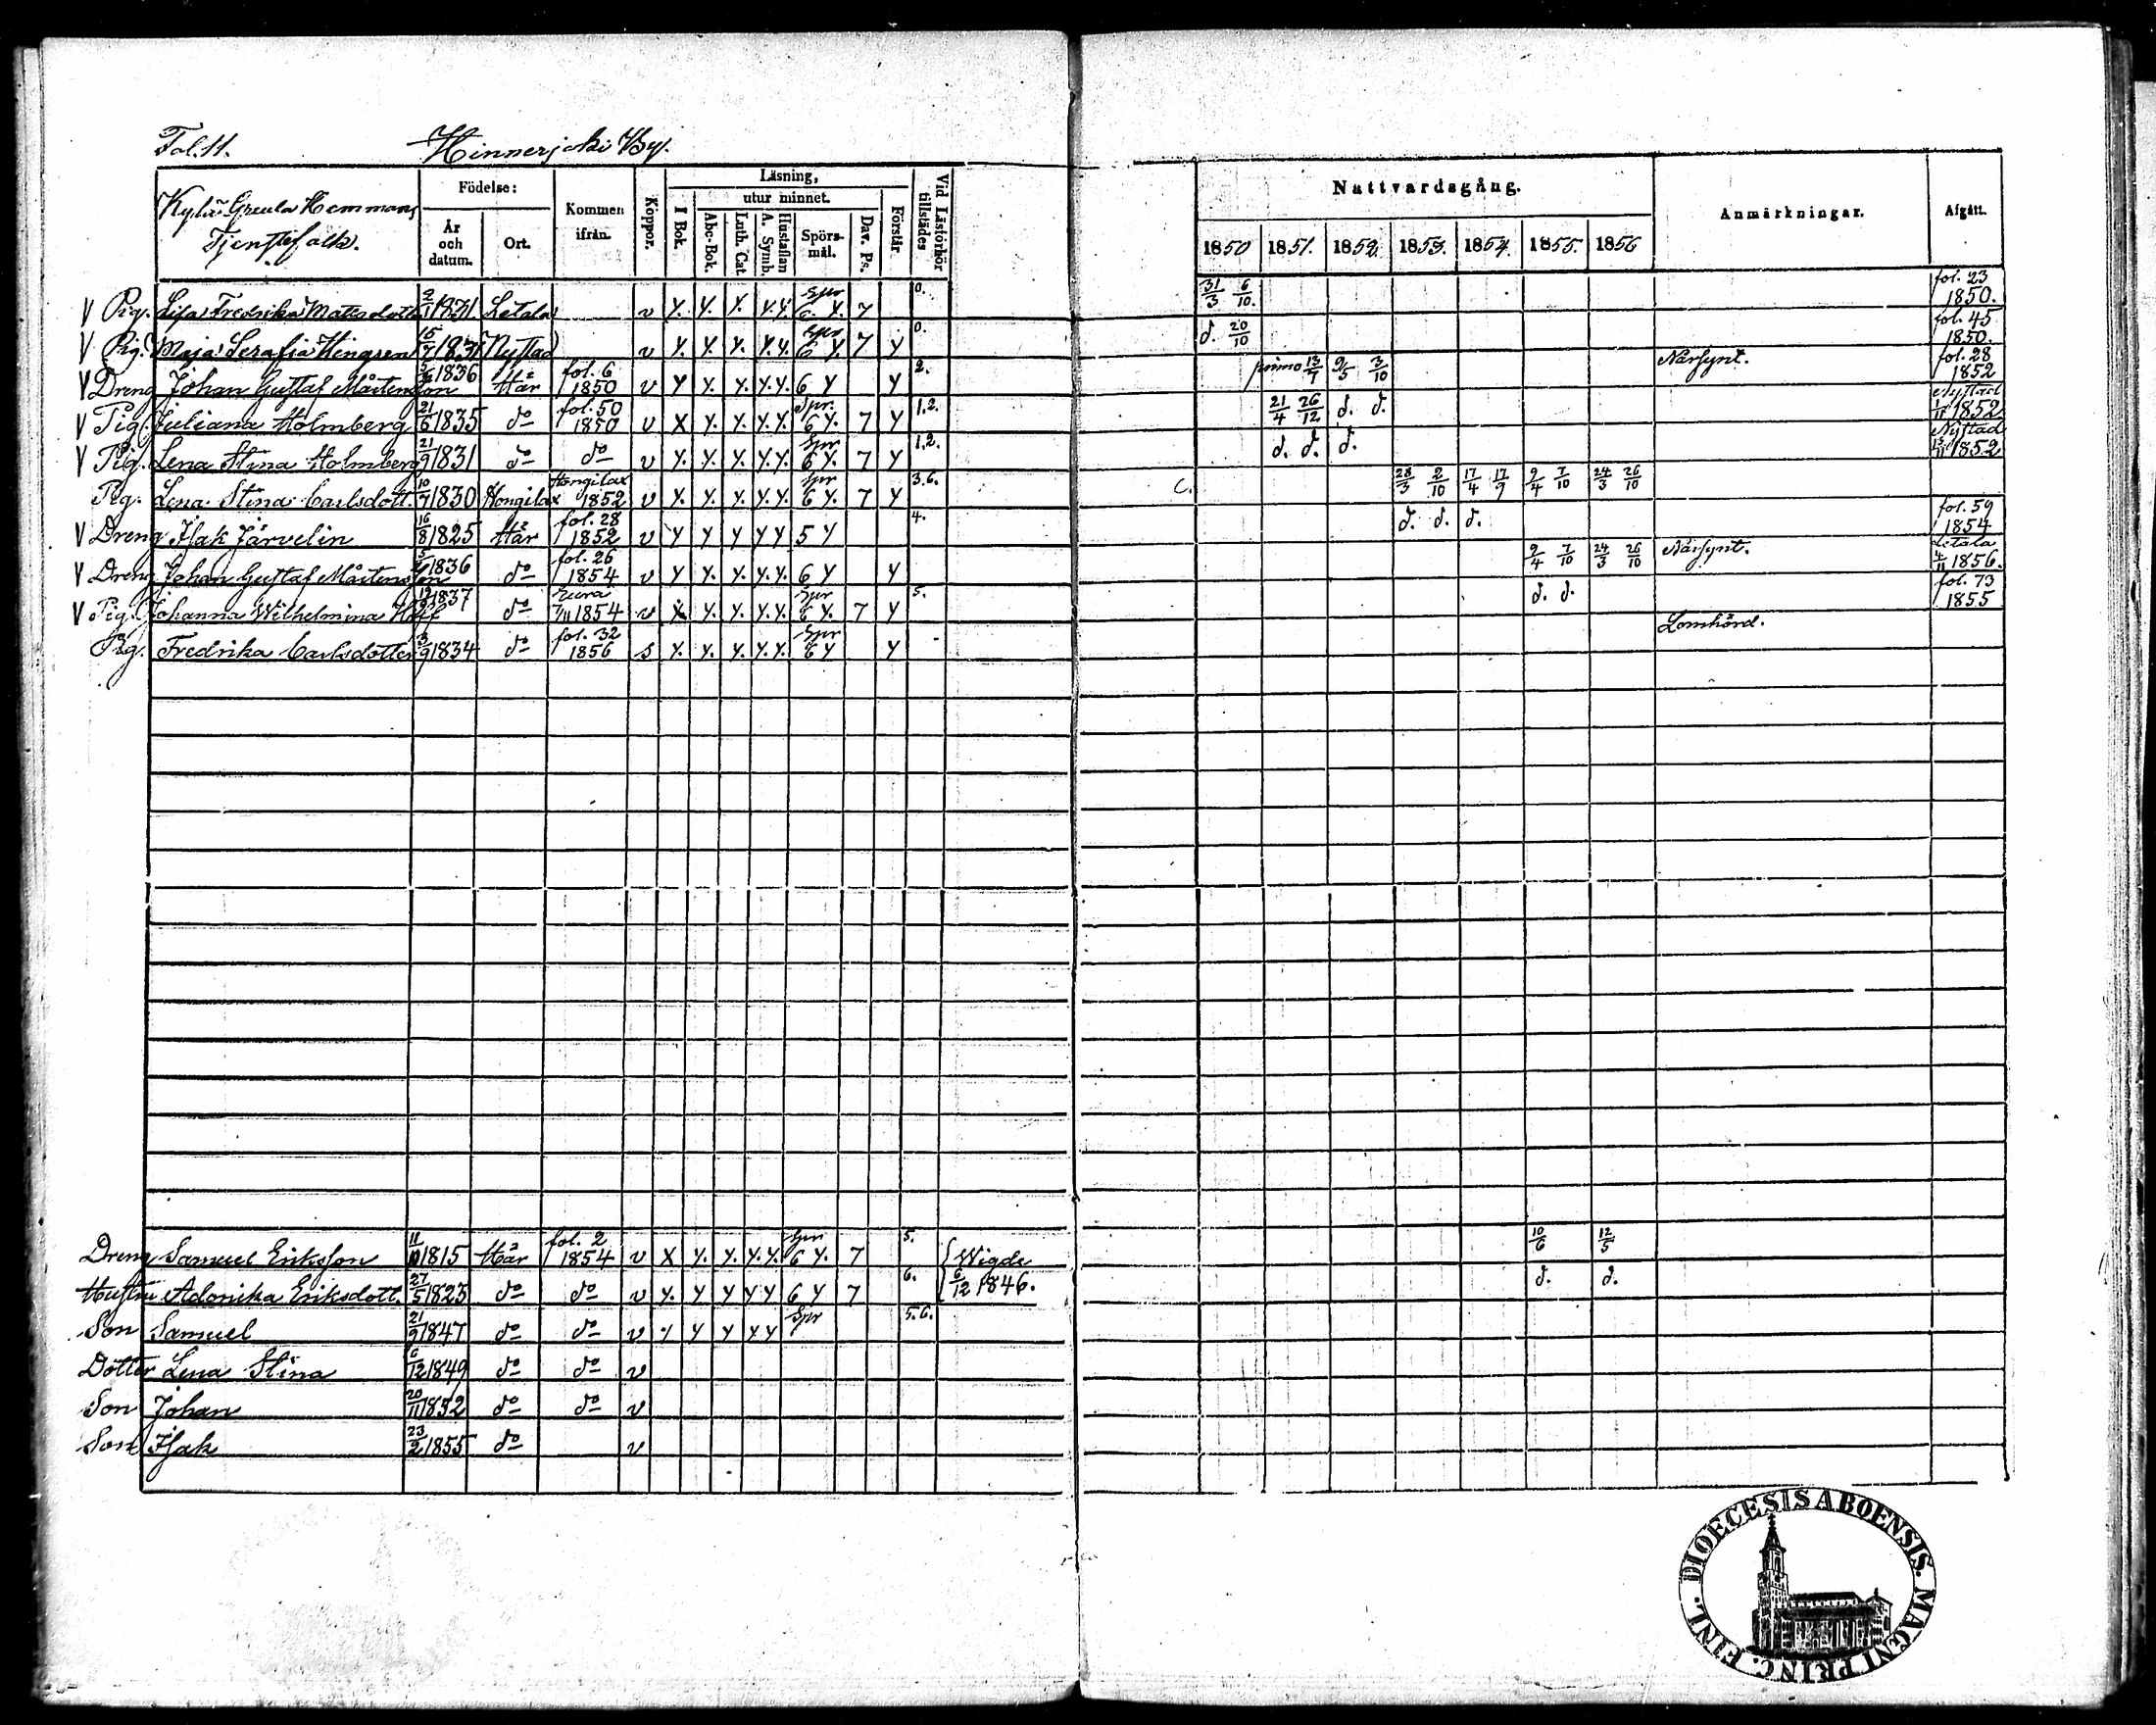 Fol. 11. Hinnerjoki By.
Kylä Greula Hemmans
Tjenstefolk.
Födelse:
År och datum.
Ort.
Kommen ifrån.
Koppor.
Läsning,
I Bok.
utur minnet.
Abc-Bok.
Luth. Cat.
A. Symb.
Hustaflan
Spörsmål.
Dav. Ps.
Förstår.
Vid Läsförhör tillstädes
Nattvardsgång.
1850 1851. 1852. 1853. 1854. 1855. 1856
Anmärkningar.
Afgått.
V Pig. Lisa Fredrika Mattsdotter 1831 Letala v Y. Y. Y. Y.Y. Spr 6 Y. 7 0. 31/3 6/10. fol. 23 1850.
V Pig. Maja Serafia Hengren 1831 Nystad v Y. Y. Y. Y.Y. Spr 6 Y. 7 Y 0. d. 20/10 fol. 45 1850.
V Dreng Johan Gustaf Mårtensson 1836 Här fol. 6 1850 v Y Y. Y. Y.Y. 6 Y Y 2. primo 13/7 9/5 3/10 Närsynt. fol. 28 1852
V Pig. Juliana Holmberg 21/6 1835 do fol. 50 1850 v X Y. Y. Y.Y. Spr. 6 Y. 7 Y 1.2. 21/4 26/12 d. d. Nystad 1/11 1852
V Pig. Lena Stina Holmberg 21/9 1831 do do v Y. Y. Y. Y.Y. Spr 6 Y. 7 Y 1.2. d. d. d. Nystad 13/11 1852
Pig. Lena Stina Carlsdott. 10/7 1830 Hongilax Hongilax 1852 v Y. Y. Y. Y.Y. Spr 6 Y. 7 Y 3.6. C. 28/3 2/10 17/4 17/9 9/4 7/10 24/3 26/10
V Dreng Isak Järvelin 16/8 1825 Här fol. 28 1852 v Y Y Y Y Y 5 Y 4. d. d. d. fol. 59 1854
V Dreng Johan Gustaf Mårtensson 1836 do fol. 26 1854 v Y Y. Y. Y.Y. 6 Y Y 9/4 7/10 24/3 26/10 Närsynt. Letala 4/11 1856.
V Pig. Johanna Wilhelmina Hoff 1837 do Eura 7/11 1854 v X Y. Y. Y.Y. Spr 6 Y. 7 Y 5. d. d. fol. 73 1855
Pig. Fredrika Carlsdotter 3/9 1834 do fol. 32 1856 s Y. Y. Y. Y.Y. Spr 6 Y Y Lomhörd.
Dreng Samuel Eriksson 1815 Här fol. 2 1854 v X Y. Y. Y.Y. Spr 6 Y. 7 5. { Wigde 10/6 12/5
Hustru Adonika Eriksdott. 27/5 1823 do do v Y. Y Y Y Y 6 Y 7 6. 6/12 1846. d. d.
Son Samuel 21/9 1847 do do v Y Y Y Y Y Spr 5.6.
Dotter Lena Stina 6/12 1849 do do v
Son Johan 20/11 1852 do do v
Son Isak 23/2 1855 do v
DIOECESIS ABOENSIS. MAGNI PRINC. FINL.